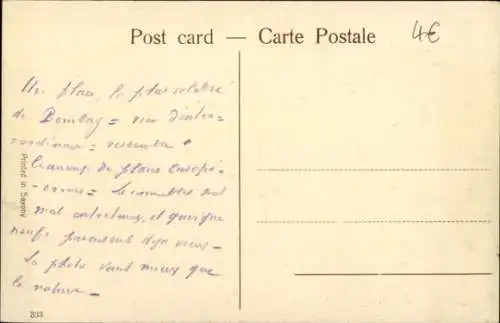 Post card — Carte Postale
4€
Un place, la plus célèbre
de Bombay = rien d'extra-
-ordinaire = ressemble à
de places europé-
-ennes = les sont
mal entretenus, et quoique
neufs paraissent déjà vieux -
la photo vaut mieux que
la nature -
Printed in Saxony